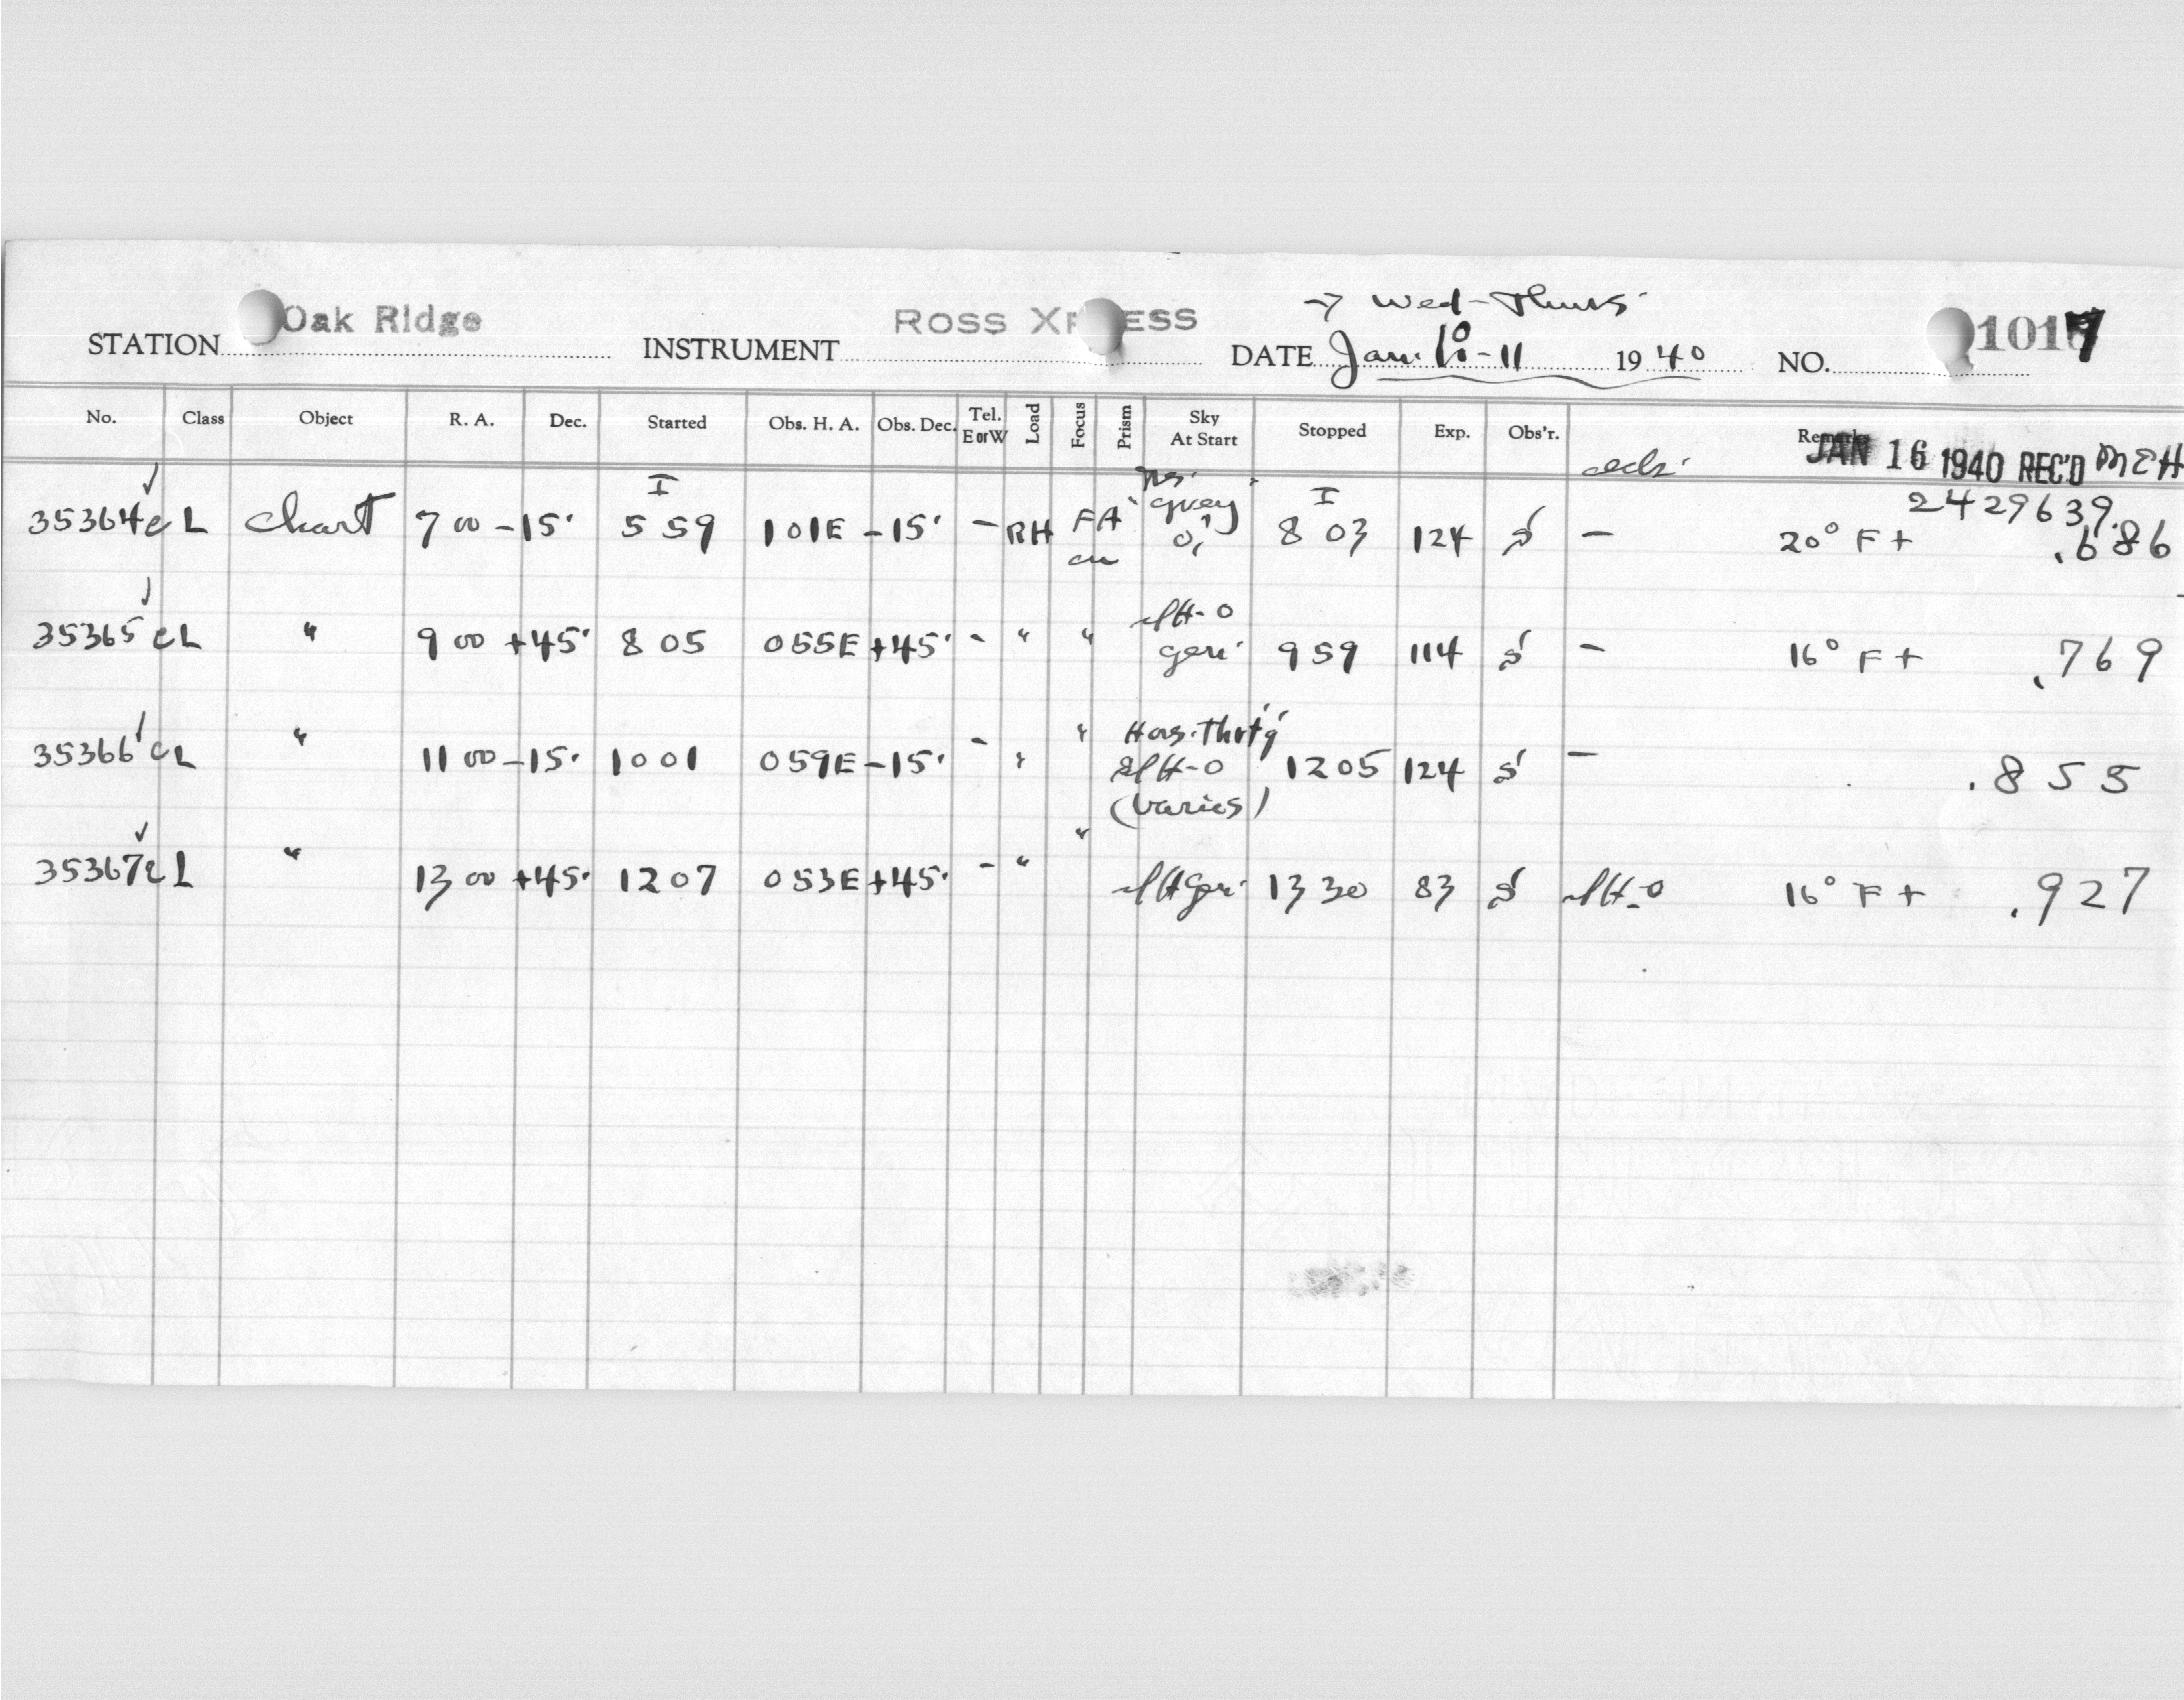 → Wed-Thurs.
STATION Oak Ridge INSTRUMENT ROSS XPRESS DATE Jan. 10-11 1940 NO. 1017
No. Class Object R. A. Dec. Started Obs. H. A. Obs. Dec. Tel. E or W Load Focus Prism Sky At Start Stopped Exp. Obs'r. Remarks
JAN 16 1940 REC'D MEH
2429639.
35364 c L Chart 7 00 -15° I 5 59 1 01E -15° - RH FA I 8 03 124 S - 20° F + .686
35365 c L " 9 00 +45° 8 05 0 55E +45° - " " 9 59 114 S - 16° F + .769
35366 c L " 11 00 -15° 10 01 0 59E -15° - " " H-0 (varies) 12 05 124 S - .855
35367 c L " 13 00 +45° 12 07 0 53E +45° - " " 13 30 83 S 16° F + .927